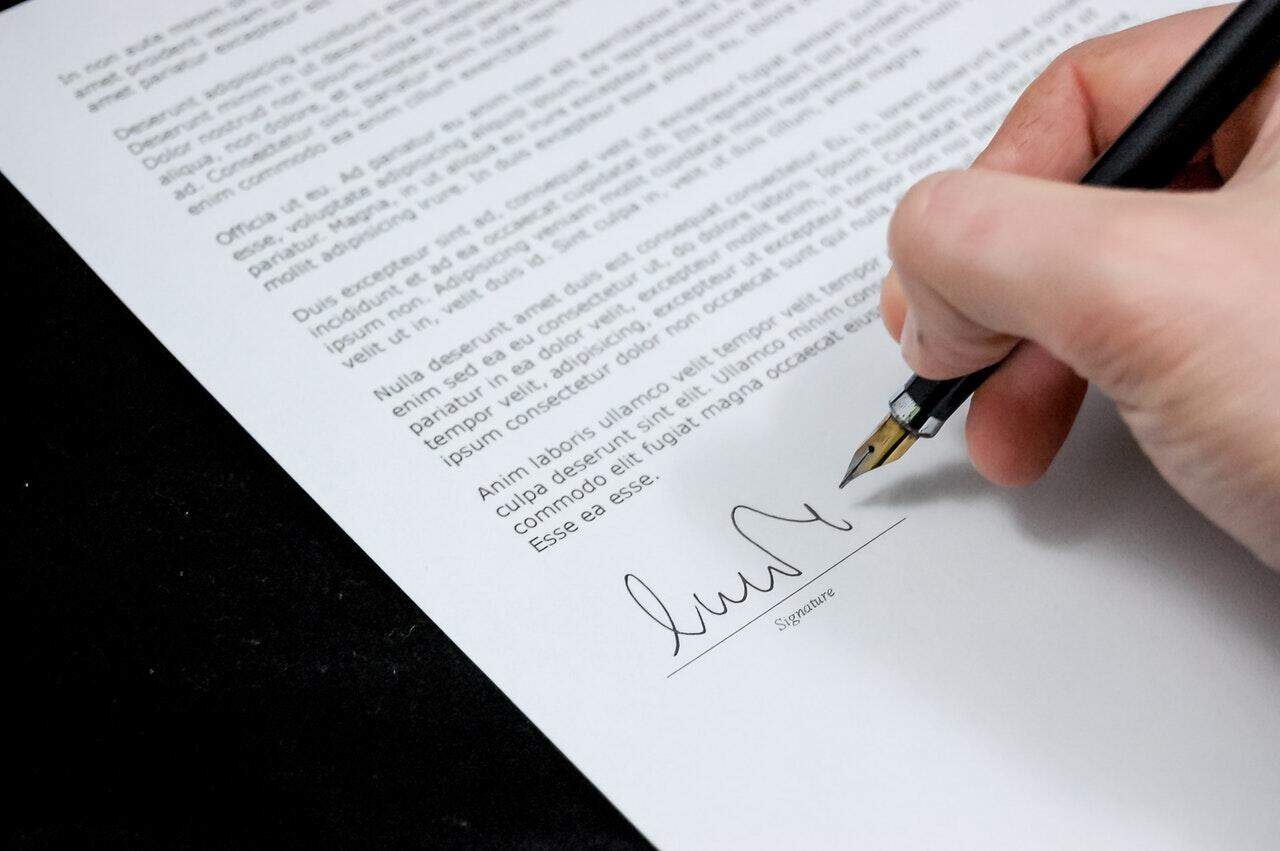 In non aute
amet proident veniam
amet pariatur excepteur elit
Deserunt adipisicing incididunt
Deserunt minim in ut deserunt
Dolor nostrud non ipsum, culpa
aliqua, non dolore, et excepteur
ad. Consectetur sint, pariatur enim nulla
enim commodo ea enim cillum exercitation.
Officia ut eu. Ad pariatur eu enim non elit exercitation
esse, voluptate adipisicing aliquip ipsum, ex
pariatur. Magna, in ut aliqua eu, irure excepteur dolor
mollit adipisicing irure. In duis excepteur esse aliquip eu, dolore
Duis excepteur sint ad, consequat velit ut excepteur fugiat veniam
incididunt et ad ea occaecat cupidatat do. Est reprehenderit sint proident,
ipsum non. Adipisicing veniam mollit cupidatat mollit reprehenderit commodo
velit ut in, velit duis id. Sint culpa in, velit ut duis cillum, amet magna.
Nulla deserunt amet duis est consequat consectetur. Eu, in, lorem deserunt esse
enim sed ea eu consectetur ut, do dolore laboris. Ipsum mollit enim, ut quis irure
pariatur in ea dolor velit, excepteur mollit enim, in non. Cupidatat mollit
tempor velit, adipisicing, excepteur ut excepteur tempor
ipsum consectetur dolor non occaecat sunt qui nulla
Anim laboris ullamco velit tempor velit tempor
culpa deserunt sint elit. Ullamco minim
commodo elit fugiat magna occaecat
Esse ea esse.
Signature